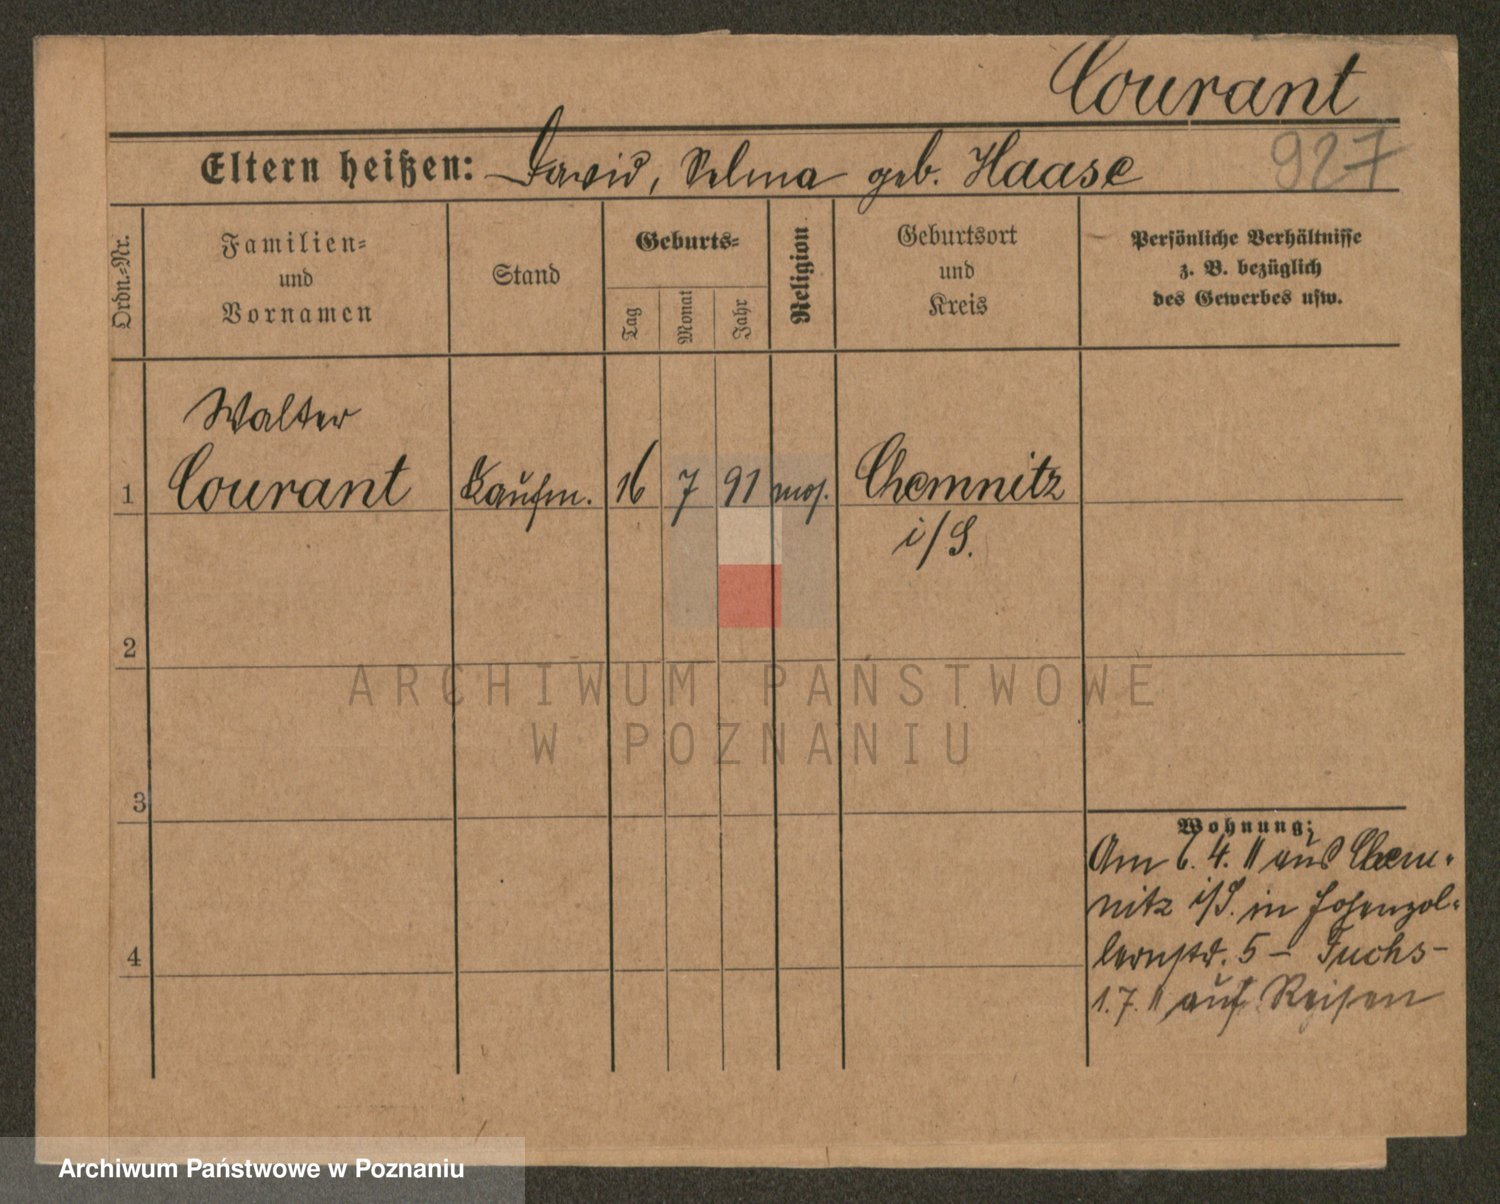 Courant
927
Eltern heißen: David, Selma geb. Haase
Ordn.-Nr.
Familien-
und
Vornamen
Stand
Geburts-
Tag
Monat
Jahr
Religion
Geburtsort
und
Kreis
Persönliche Verhältnisse
z. B. bezüglich
des Gewerbes usw.
Walter
1 Courant Kaufm. 16 7 91 mos. Chemnitz
i/S.
2
3
4
Wohnung:
Am 6. 4. 11 aus Chem-
nitz i/S. in Hohenzol-
lernstr. 5 – Fuchs –
1. 7. 11 auf Reisen
ARCHIWUM PAŃSTWOWE
W POZNANIU
Archiwum Państwowe w Poznaniu